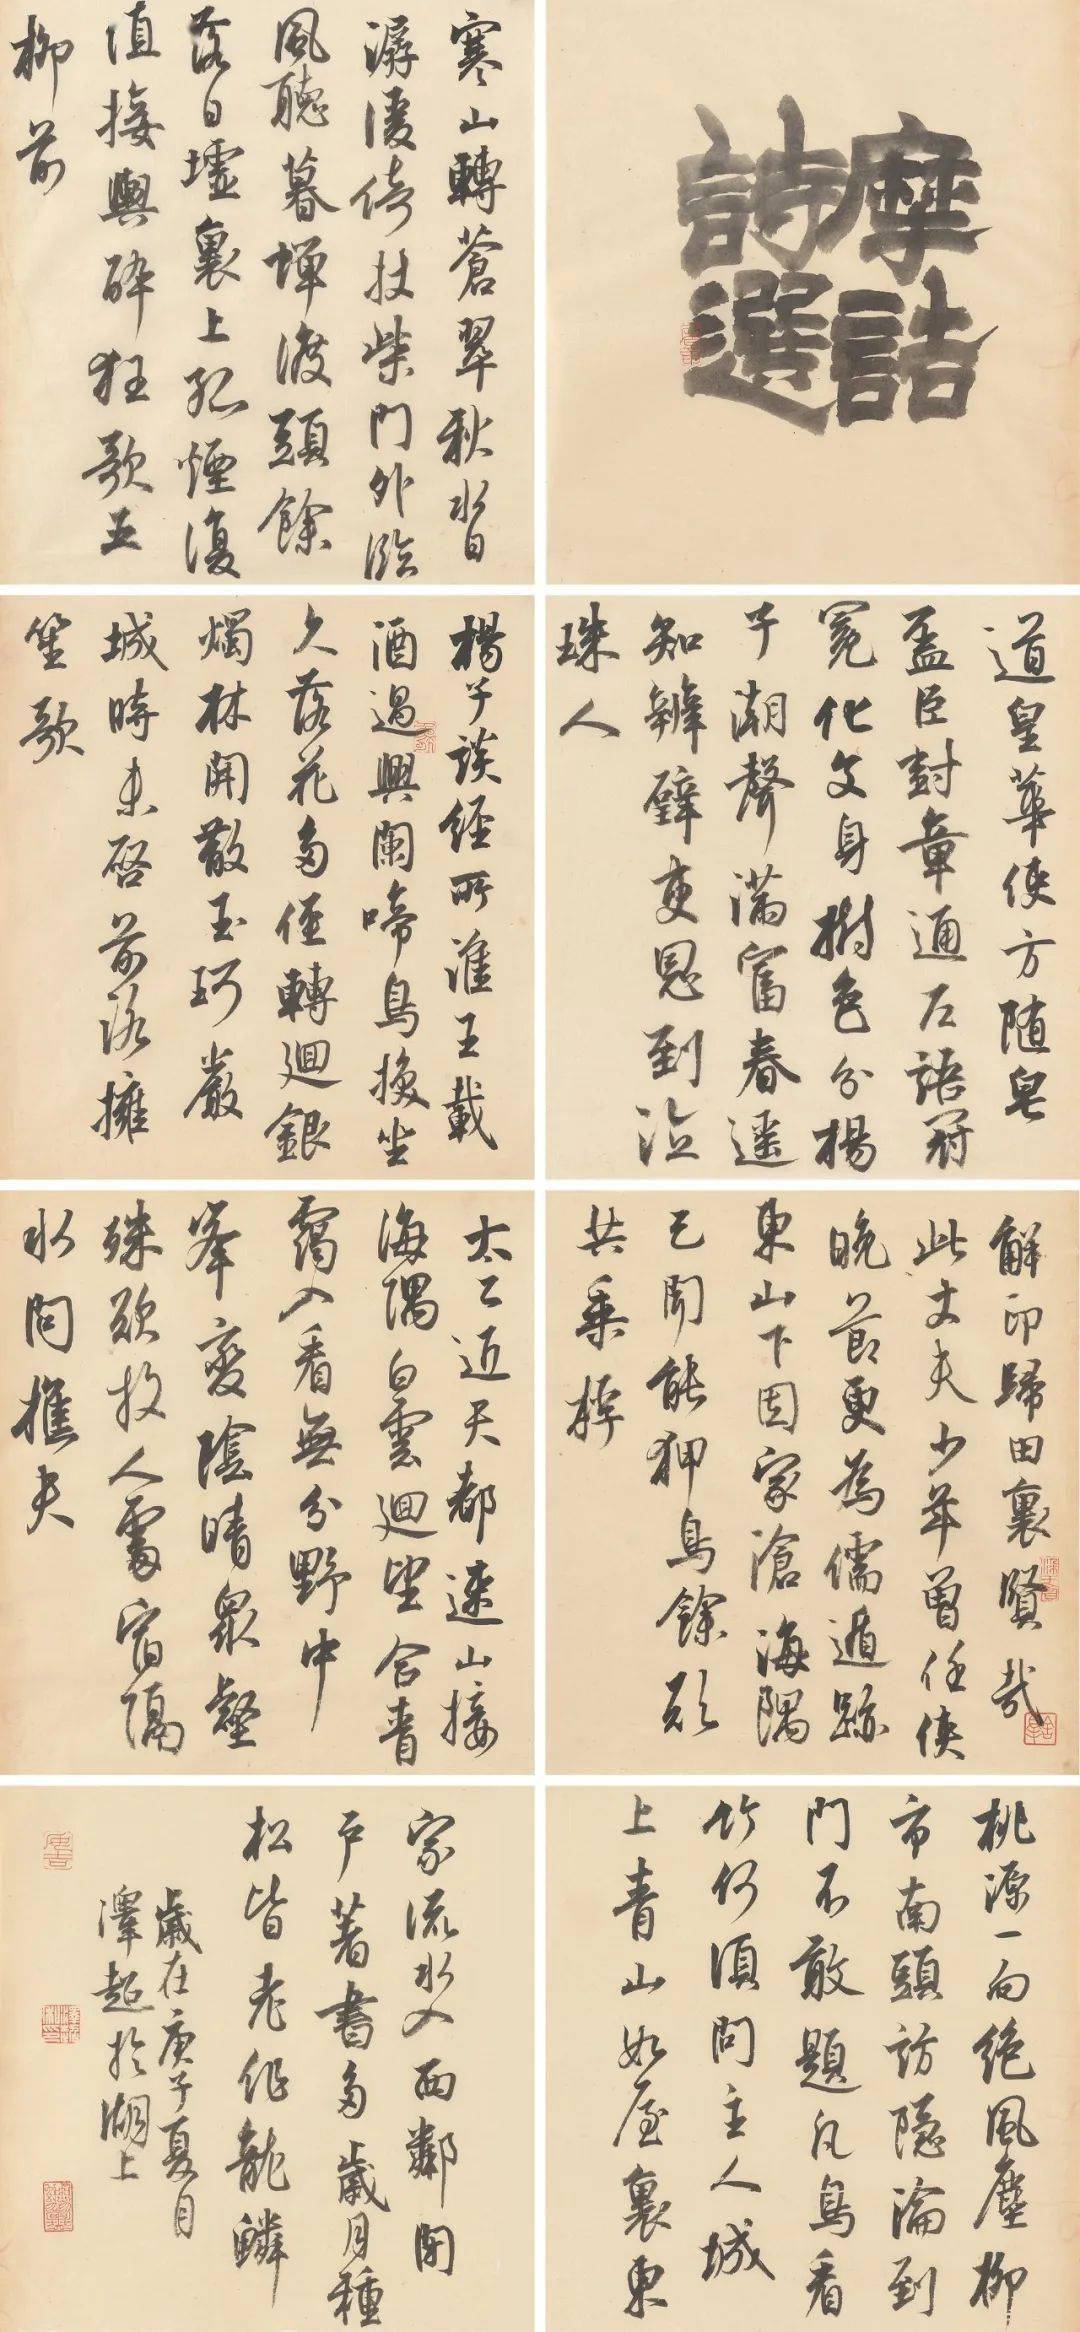 摩詰
詩選
寒山轉蒼翠秋水日
潺湲倚杖柴門外臨
風聽暮蟬渡頭餘
落日墟裏上孤煙復
值接輿醉狂歌五
柳前
道皇華使方隨皂
蓋臣封章通左語冠
冕化文身樹色分楊
子潮聲滿富春遥
知辨璧吏恩到泣
珠人
楊子談經所淮王載
酒過興闌啼鳥換坐
久落花多徑轉迴銀
燭林開散玉珂嚴
城時未啓前路擁
笙歌
解印歸田裏賢哉
此丈夫少年曾任俠
晚節更為儒遁跡
東山下因家滄海隅
已聞能狎鳥餘欲
共乘桴
太乙近天都連山接
海隅白雲迴望合青
靄入看無分野中
峯變陰晴衆壑
殊欲投人處宿隔
水問樵夫
桃源一向絕風塵柳
市南頭訪隱淪到
門不敢題凡鳥看
竹何須問主人城
上青山如屋裏東
家流水入西鄰閉
戶著書多歲月種
松皆老作龍鱗
歲在庚子夏月
澤超於湖上